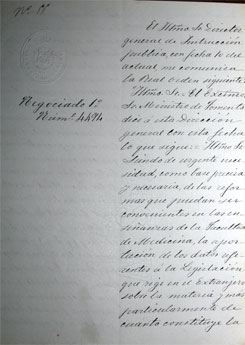 Nº 17
El Ilmo Sr. Director
general de Instrucción
pública, con fecha 16 del
actual me comunica
la Real orden siguiente:
"Ilmo Sr. El Excmo
Sr. Ministro de Fomento
dice á esta Dirección
general con esta fecha
lo que sigue: Ilmo Sr.
Siendo de urgente nece-
sidad, como
y necesaria, de las refor-
mas que puedan ser
convenientes en las en-
señanzas de la Facultad
de Medicina, la
de los datos refe-
rentes á la Legislación
que rige en el Extranjero
sobre la materia y mas
particularmente de
cuanto constituye la
Negociado 1º
Numº 4494